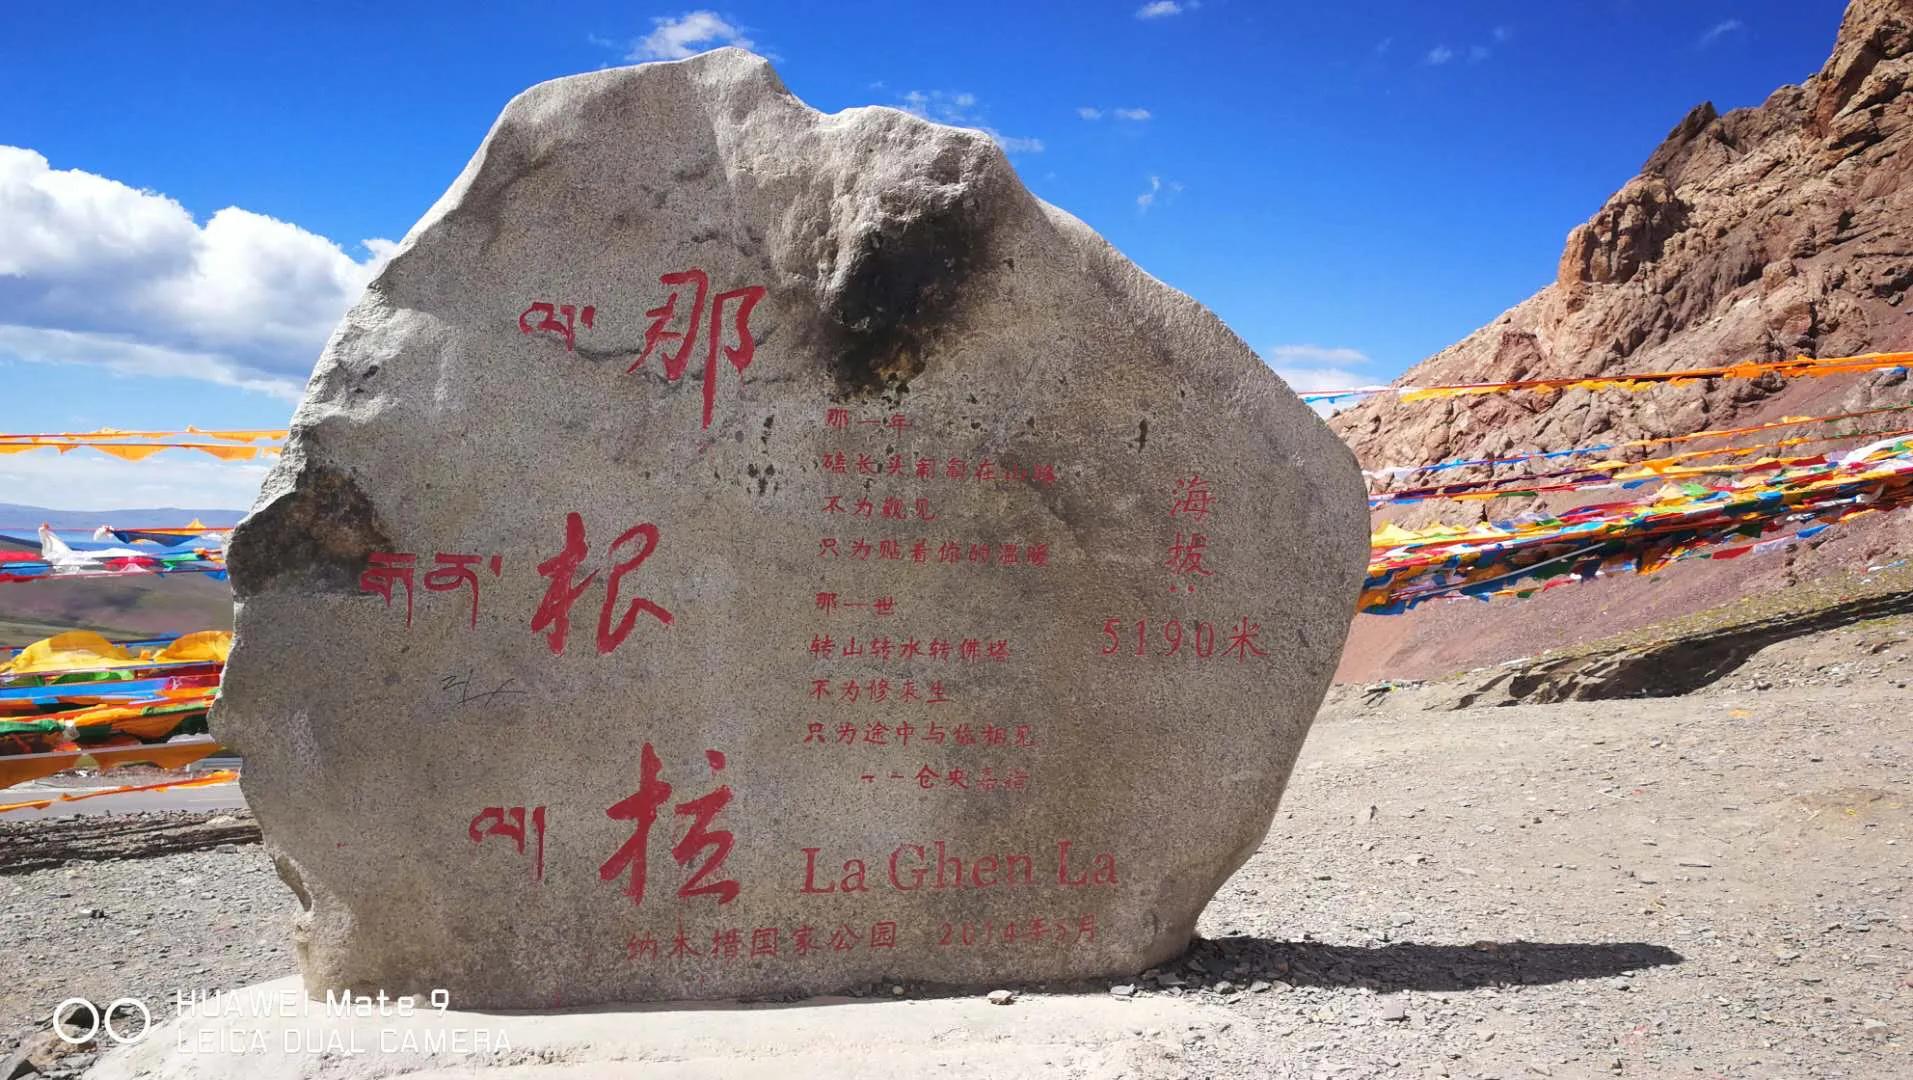 ལ་
那
གན་
根
ལ།
拉
那一年
磕长头匍匐在山路
不为觐见
只为贴着你的温暖
那一世
转山转水转佛塔
不为修来生
只为途中与你相见
--仓央嘉措
海拔:
5190米
La Ghen La
纳木措国家公园 2014年5月
HUAWEI Mate 9
LEICA DUAL CAMERA